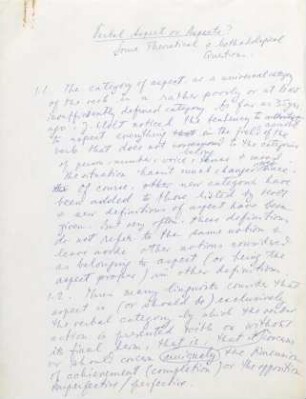 Verbal Aspect or Aspects?
Some Theoretical & Methodological
Questions.
1.1. The category of aspect, as a universal category
of the verb is a rather poorly or at least
insufficiently defined category. As far as 35 yrs
ago, I. Holt noticed the tendency to
to aspect everything in the field of the
verb that does not belong to the categories
of person, number, voice, tense & mood.
The situation hasn't much changed there.
Of course, other new categories have
been added to those listed by Holt
& new definitions of aspect have been
given. But very often, these definitions
do not refer to the same notion &
leave aside other notions considered
as belonging to aspect (or being the
aspect proper) in other definitions.
1.2. Thus many linguists consider that
aspect is (or should be) exclusively
the verbal category by which the
action is presented with or without
its final term, that is, that it concerns
or should concern uniquely the dimension
of achievement (completion) or the opposition
imperfective / perfective.